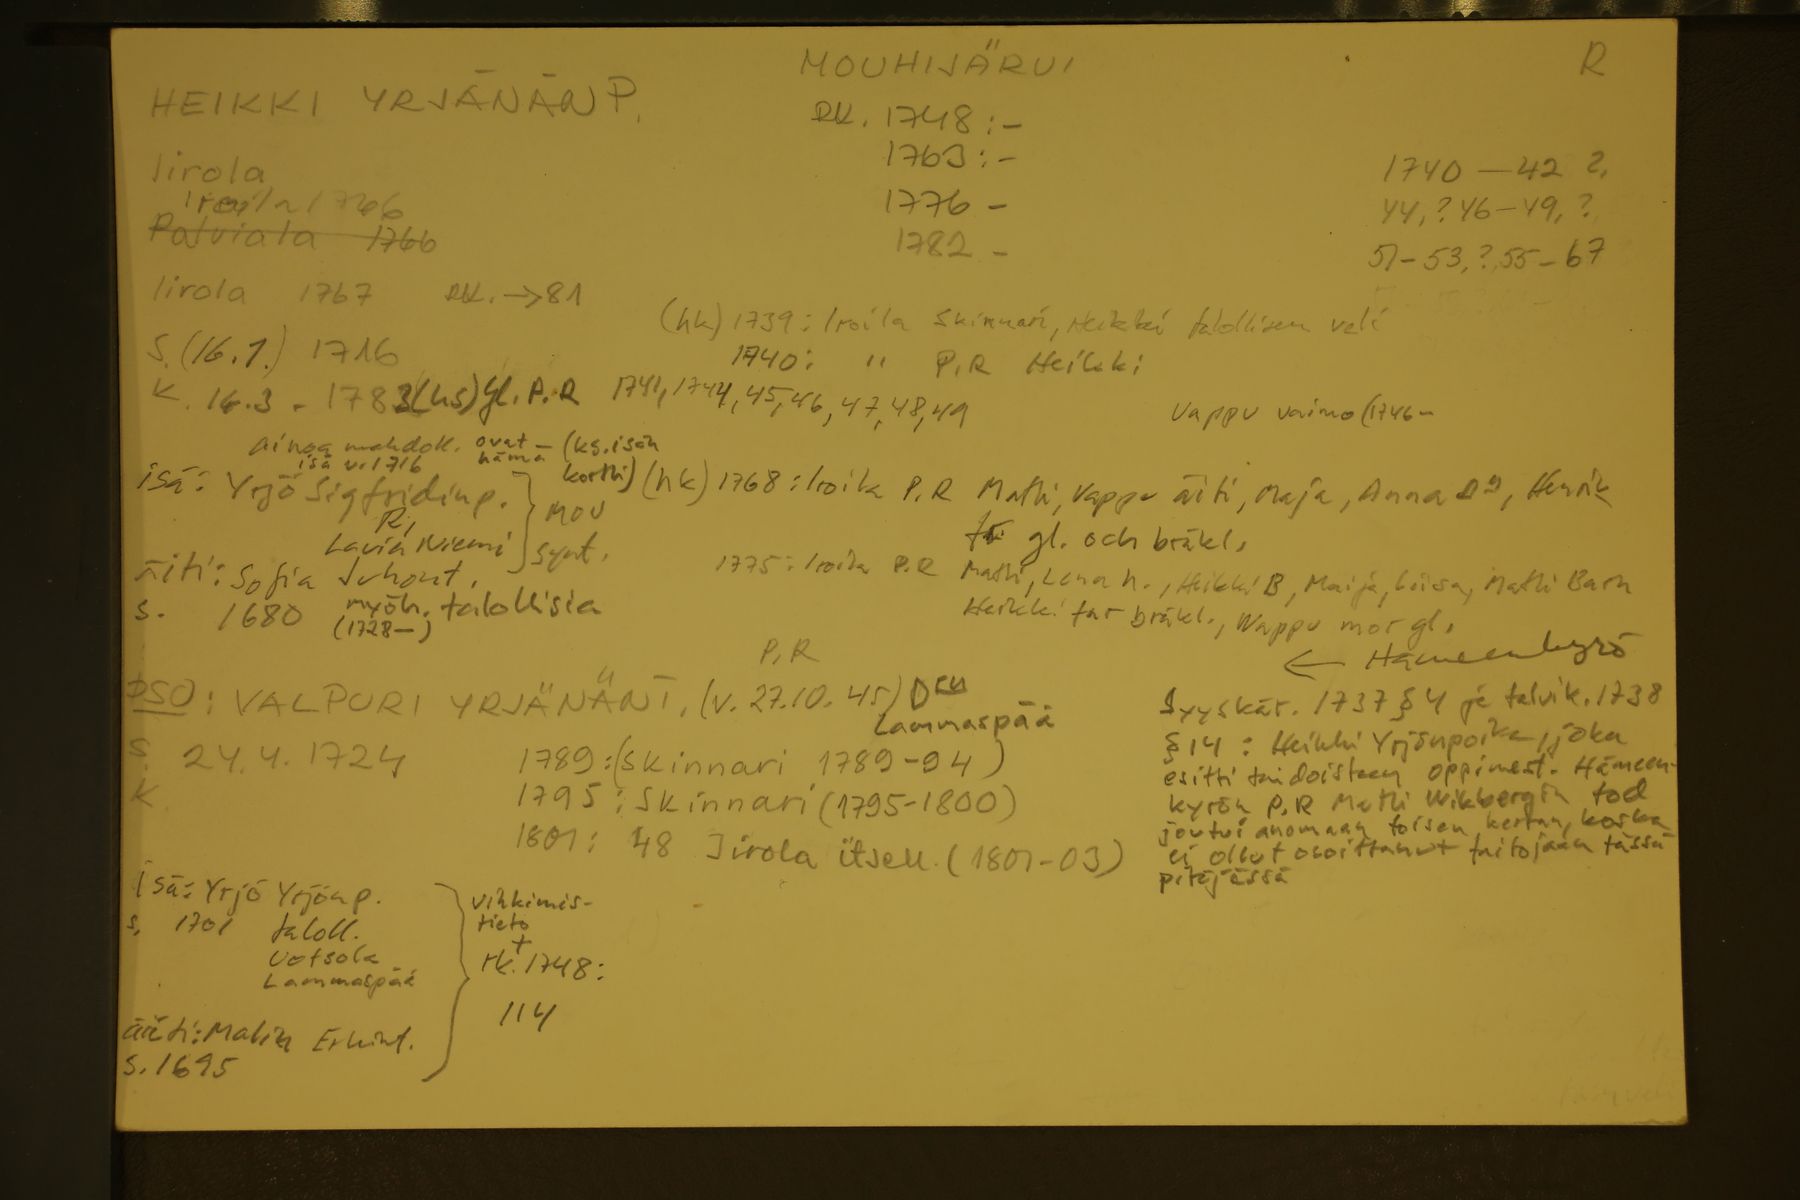 MOUHIJÄRVI
R
HEIKKI YRJÄNÄNP.
RK. 1748:-
1763:-
1776 -
1782 -
1740 — 42 ?,
44, ? 46 - 49, ?
51 - 53, ?, 55 - 67
Iirola
Iroila 1766
Palviala 1766
Iirola 1767 RK. → 81
S. (16.1.) 1716
K. 16.3 - 1783 (hs) gl. P.R
(hk) 1739: Iroila Skinnari, Heikki talollisen veli
1740: " P.R Heikki
1741, 1744, 45, 46, 47, 48, 49
Vappu vaimo (1746 -
ainoa mahdoll. ovat - (ks. isän
isä v. 1716 nämä kortti)
isä: Yrjö Sigfridinp.
R,
Lavia Niemi
MOU
synt.
äiti: Sofia Juhont.
s. 1680 myöh. talollisia
(1728 -)
(hk) 1768: Iroila P.R Matti, Vappu äiti, Maja, Anna, Henrik
gl. och bräkl.
1775: Iroila P.R Matti, Lena h., Heikki B, Maija, Liisa, Matti Barn
Heikki far bräkl., Wappu mor gl.
← Hämeenkyrö
Syyskär. 1737 § 4 ja talvik. 1738
§ 14: Heikki Yrjönpoika, joka
esitti taidoisteen oppimest. Hämeen-
kyrön P.R Matti Wikbergin tod
joutui anomaan toisen kerran, koska
ei ollut osoittanut taitojaan tässä
pitäjässä
P.R
PSO: VALPURI YRJÄNÄNT. (v. 27.10.45) D
Lammaspää
S. 24.4.1724
K
1789: (Skinnari 1789-94)
1795: Skinnari (1795-1800)
1801: 48 Iirola itsell. (1801-03)
isä: Yrjö Yrjönp.
s. 1701 taloll.
Uotsola
Lammaspää
äiti: Malin Erkint.
s. 1695
vihkimis-
tieto
+
rk. 1748:
114